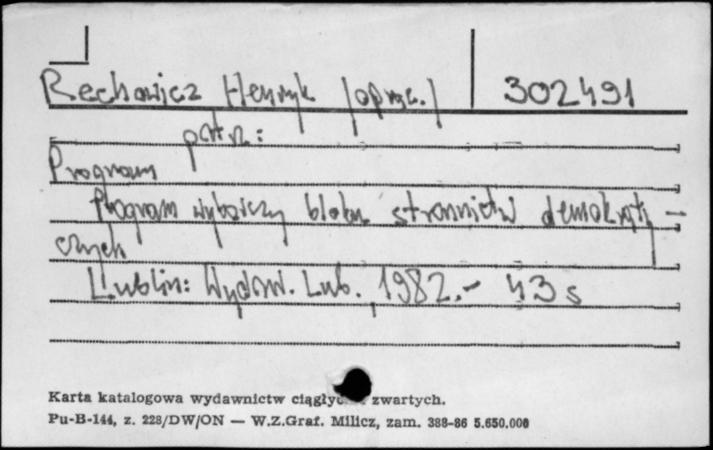 Rechowicz Henryk /oprac./ 302491
patrz:
Program
Program wyborczy bloku stronnictw demokraty-
cznych
Lublin: Wydaw. Lub., 1982.- 43 s
Karta katalogowa wydawnictw zwartych.
Pu-B-144, z. 228/DW/ON — W.Z.Graf. Milicz, zam. 388-86 5.650.000